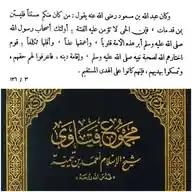 وكان عبد الله بن مسعود رضي الله عنه يقول : من كان منكم مستناً فليستن
بمن قد مات ؛ فإن الحي لا تؤمن عليه الفتنة ؛ أولئك أصحاب رسول الله
صلى الله عليه وسلم أبر هذه الأمة قلوباً ، وأعمقها علماً ، وأقلها تكلفاً ؛ قوم
اختارهم الله لصحبة نبيه صلى الله عليه وسلم ، وإقامة دينه ، فاعرفوا لهم حقهم ،
وتمسكوا بهديهم ، فإنهم كانوا على الهدى المستقيم .
٣ / ١٢٦
مجموع فتاوى
شيخ الإسلام أحمد بن تيمية
قدس الله روحه